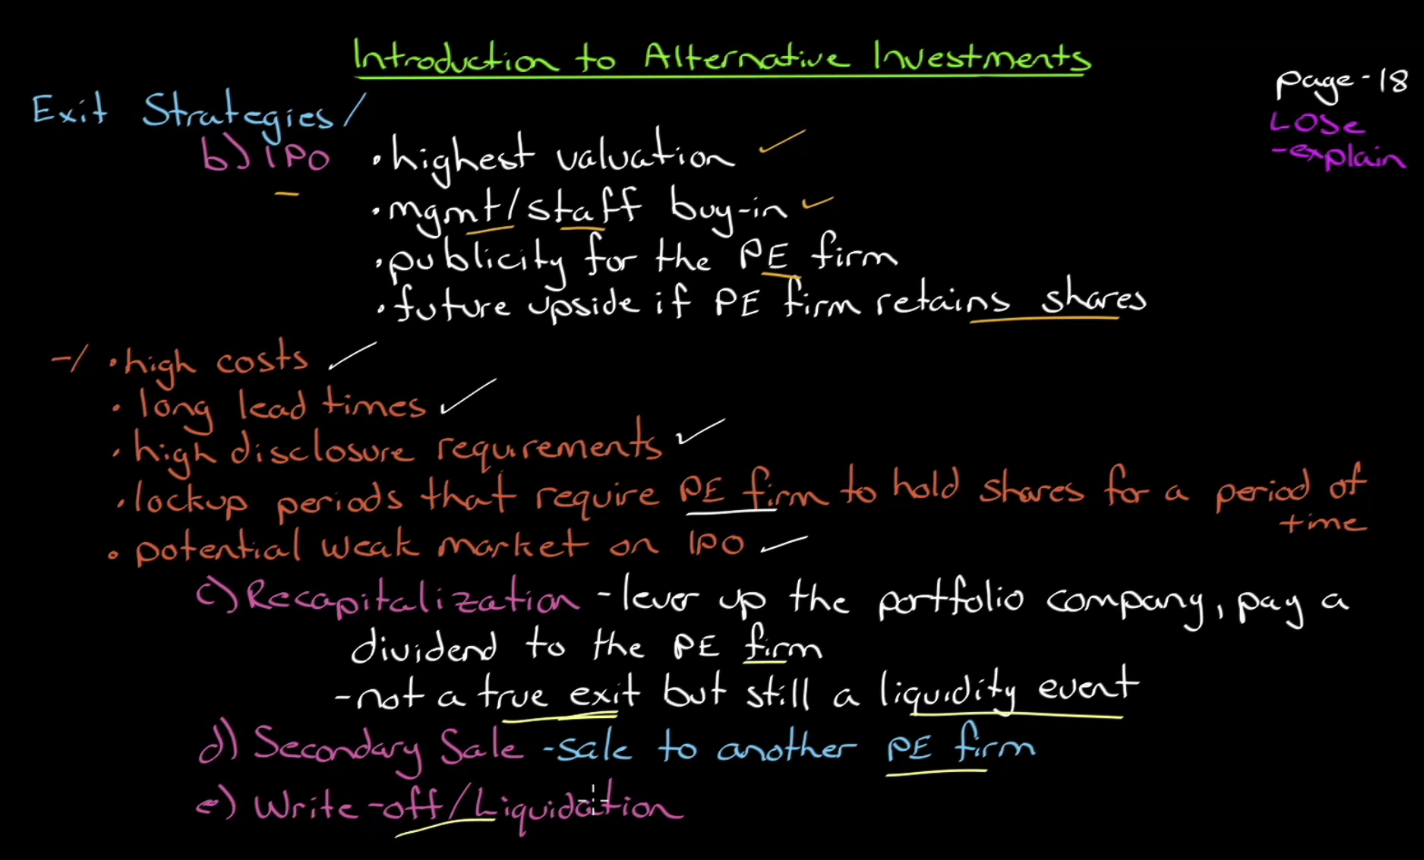 Introduction to Alternative Investments
page-18
LOSe
-explain
Exit Strategies/
b) IPO
• highest valuation
• mgmt/staff buy-in
• publicity for the PE firm
• future upside if PE firm retains shares
-/ • high costs
• long lead times
• high disclosure requirements
• lockup periods that require PE firm to hold shares for a period of
time
• potential weak market on IPO
c) Recapitalization - lever up the portfolio company, pay a
dividend to the PE firm
- not a true exit but still a liquidity event
d) Secondary Sale - sale to another PE firm
e) Write-off/Liquidation